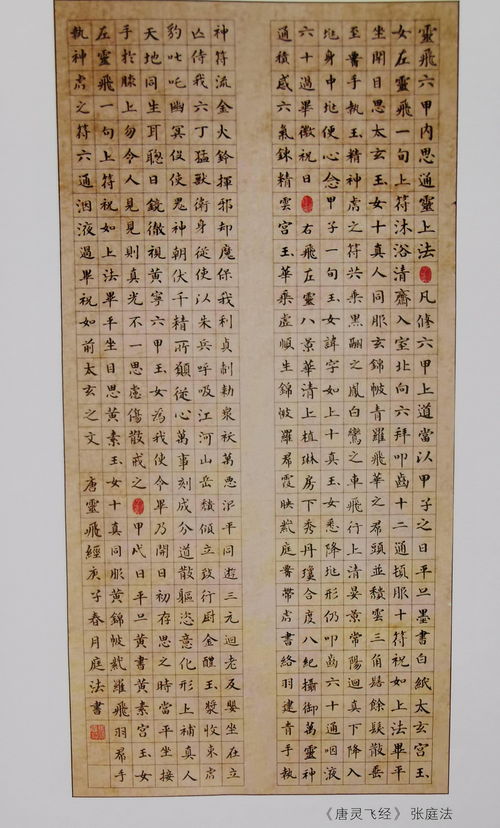 靈飛六甲內思通靈上法凡修六甲上道當以甲子之日平旦墨書白紙太玄宮玉
女左靈飛一旬上符沐浴清齋入室北向六拜叩齒十二通頓服十符祝如上法畢平
坐閉目思太玄玉女十真人同服玄錦帔青羅飛華之裙頭並穨雲三角髻餘髮散垂
至腰手執玉精神虎之符共乘黑翮之鳳白鸞之車飛行上清晏景常陽迴真下降入
地身中地便心念甲子一旬玉女諱字如上十真玉女悉降地形仍叩齒六十通咽液
六十過畢微祝曰右飛左靈八景華清上植琳房下秀丹瓊合度八紀攝御萬靈神
通積感六氣鍊精雲宮玉華乘虛順生錦帔羅裙霞映紫庭腰帶虎書絡羽建青手執
神符流金火鈴揮邪却魔保我利貞制勅眾祅萬惡泯平同遊三元迴老反嬰坐在立
亡侍我六丁猛獸衛身從使以朱兵呼吸江河山岳穨傾立致行廚金醴玉漿收束虎
豹叱吒幽冥役使鬼神朝伏千精所願從心萬事刻成分道散軀恣意化形上補真人
天地同生耳聰目鏡徹視黃寧六甲玉女為我使令畢乃開目初存思之時當平坐接
手於膝上勿令人見見則真光不一思慮傷散戒之甲戌日平旦黃書黃素宮玉女
左靈飛一旬上符祝如上法畢平坐目思黃素玉女十真同服黃錦帔紫羅飛羽裙手
執神虎之符六通咽液過畢祝如前太玄之文 唐靈飛經庚子春月庭法書
《唐灵飞经》 张庭法